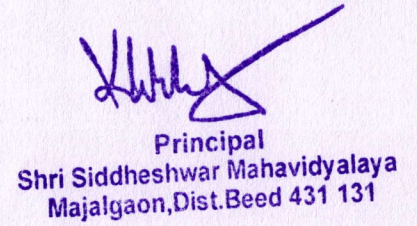 Principal
Shri Siddheshwar Mahavidyalaya
Majalgaon,Dist.Beed 431 131